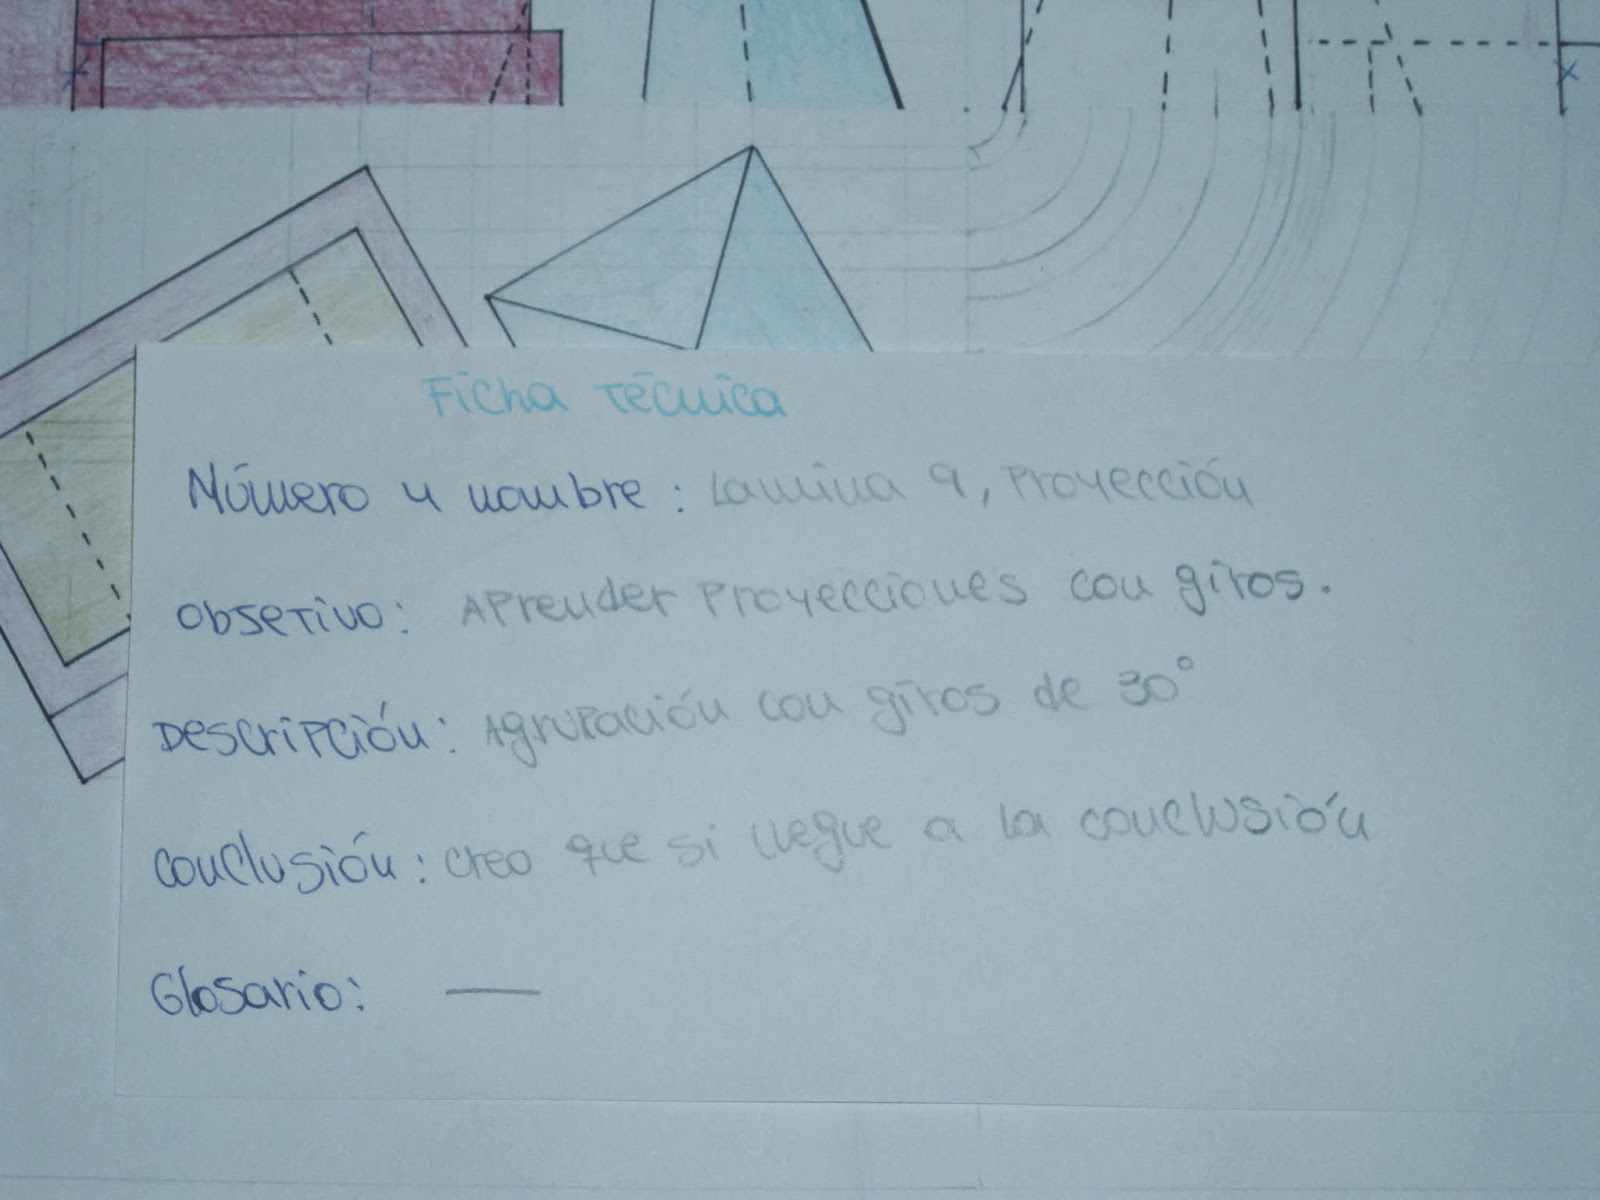 Ficha Técnica
Número y nombre: Lamina 9, Proyección
Objetivo: Aprender Proyecciones con giros.
Descripción: Agrupación con giros de 30°
Conclusión: creo que si llegue a la conclusión
Glosario: —